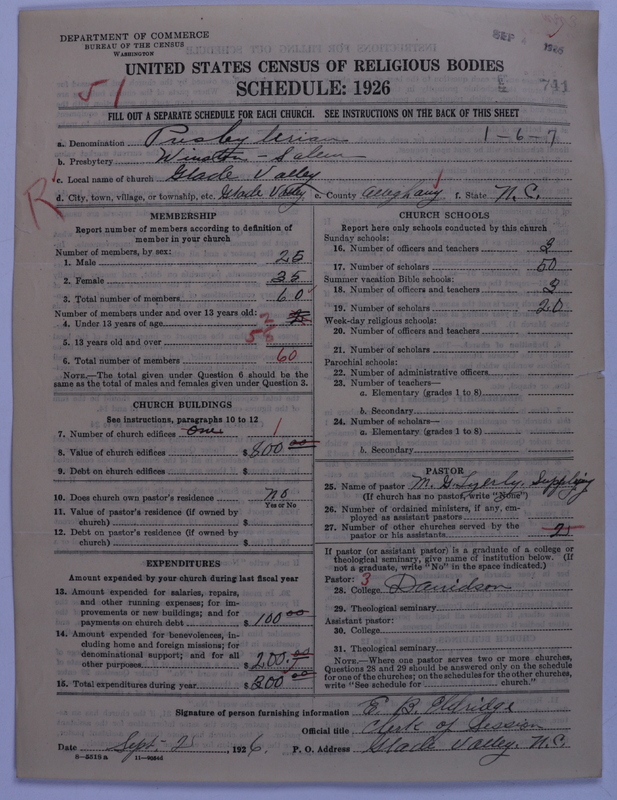 DEPARTMENT OF COMMERCE
BUREAU OF THE CENSUS
WASHINGTON
SEP 1926
51
741
UNITED STATES CENSUS OF RELIGIOUS BODIES
SCHEDULE: 1926
FILL OUT A SEPARATE SCHEDULE FOR EACH CHURCH. SEE INSTRUCTIONS ON THE BACK OF THIS SHEET
a. Denomination Presbyterian 1-6-7
b. Presbytery Winston-Salem
c. Local name of church Glade Valley
R
d. City, town, village, or township, etc. Glade Valley e. County Alleghany f. State N.C.
MEMBERSHIP
Report number of members according to definition of
member in your church
Number of members, by sex:
1. Male 25
2. Female 35
3. Total number of members 60
Number of members under and over 13 years old:
4. Under 13 years of age 2
5. 13 years old and over 58
6. Total number of members 60
NOTE.—The total given under Question 6 should be the
same as the total of males and females given under Question 3.
CHURCH BUILDINGS
See instructions, paragraphs 10 to 12
7. Number of church edifices One 1
8. Value of church edifices $ 800.00
9. Debt on church edifices $
10. Does church own pastor's residence no
Yes or No
11. Value of pastor's residence (if owned by
church) $
12. Debt on pastor's residence (if owned by
church) $
EXPENDITURES
Amount expended by your church during last fiscal year
13. Amount expended for salaries, repairs,
and other running expenses; for im-
provements or new buildings; and for
payments on church debt $ 100.00
14. Amount expended for benevolences, in-
cluding home and foreign missions; for
denominational support; and for all
other purposes $ 200.00
15. Total expenditures during year $ 300.00
CHURCH SCHOOLS
Report here only schools conducted by this church
Sunday schools:
16. Number of officers and teachers 3
17. Number of scholars 50
Summer vacation Bible schools:
18. Number of officers and teachers 3
19. Number of scholars 20
Week-day religious schools:
20. Number of officers and teachers
21. Number of scholars
Parochial schools:
22. Number of administrative officers
23. Number of teachers—
a. Elementary (grades 1 to 8)
b. Secondary
24. Number of scholars—
a. Elementary (grades 1 to 8)
b. Secondary
PASTOR
25. Name of pastor M. G. Supplying
(If church has no pastor, write "None")
26. Number of ordained ministers, if any, em-
ployed as assistant pastors
27. Number of other churches served by the
pastor or his assistants
If pastor (or assistant pastor) is a graduate of a college or
theological seminary, give name of institution below. (If
not a graduate, write "No" in the space indicated.)
Pastor: 3
28. College Davidson
29. Theological seminary
Assistant pastor:
30. College
31. Theological seminary
NOTE.—Where one pastor serves two or more churches,
Questions 28 and 29 should be answered only on the schedule
for one of the churches; on the schedules for the other churches,
write "See schedule for church."
Signature of person furnishing information E. B. Eldridge
Official title Clerk of Session
Date Sept. 25, 1926. P. O. Address Glade Valley, N.C.
8—5518a 11—9034d